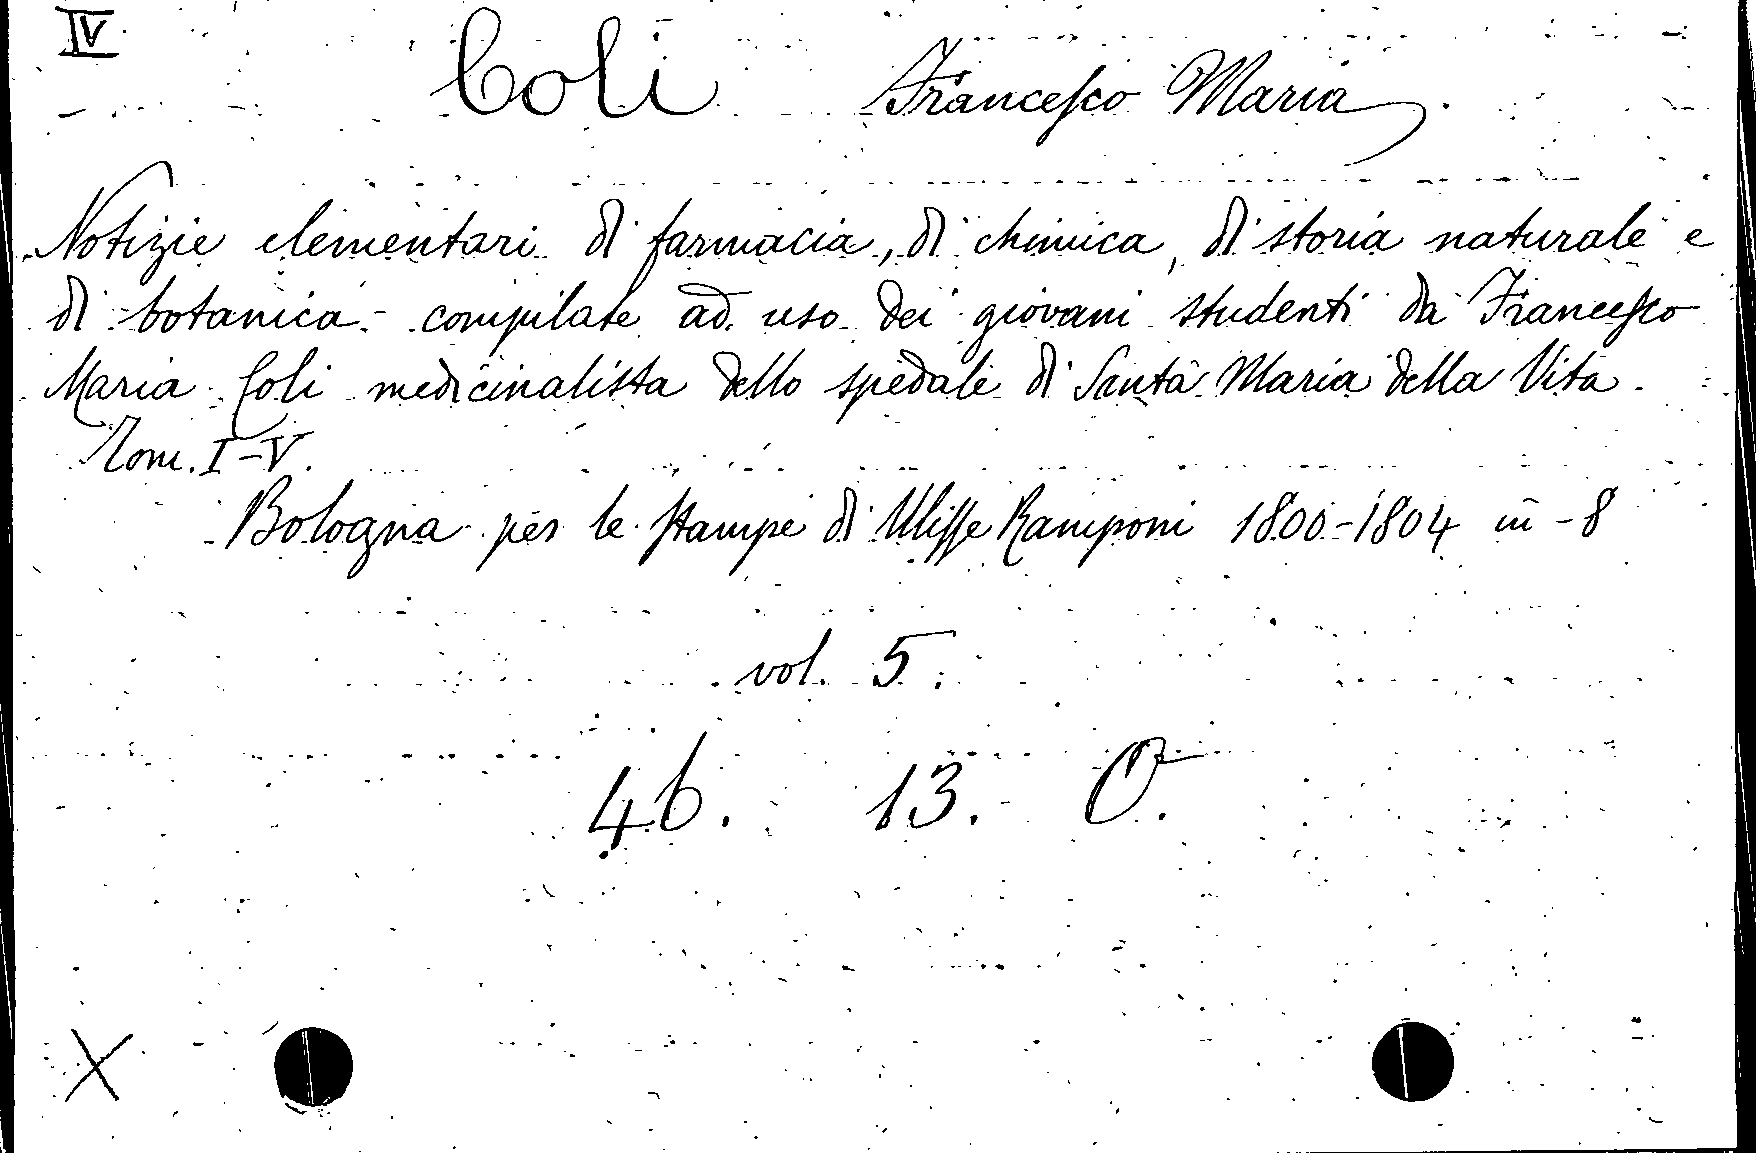 IV
Coli Francesco Maria.
Notizie elementari di farmacia, di chimica, di storia naturale e
di botanica compilate ad uso dei giovani studenti da Francesco
Maria Coli medicinalista dello spedale di Santa Maria della Vita.
Tom. I-V.
Bologna per le stampe di Ulisse Ramponi 1800-1804 in-8
vol. 5.
46. 13. O.
X